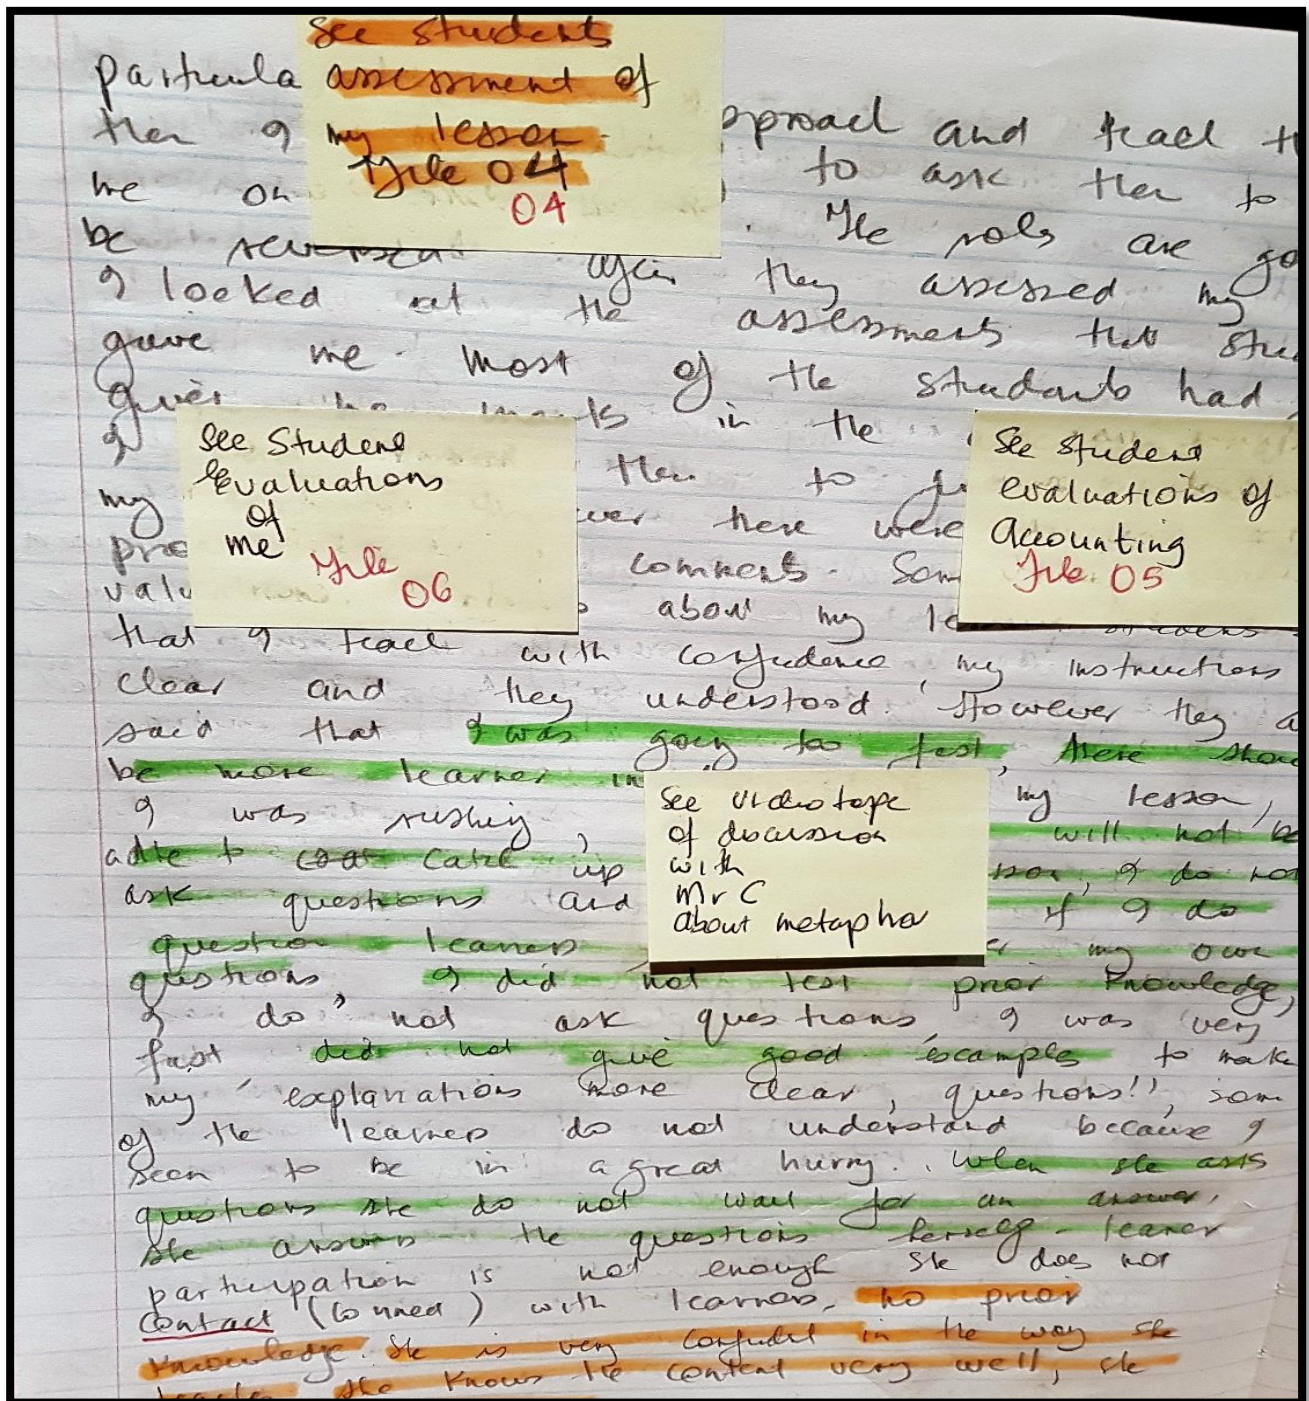 See students
assessment of
my lesson
File 04
04
particula
then I pproach and teach th
me on to ask them to
be reversed. The roles are go
I looked at the assessments that stu
again they assessed my
gave me. Most of the students had
in the
I them to
my ever there were
pro comments. Som
valu about my
See Student
Evaluations
of
me
File
06
See student
evaluations of
Accounting
File 05
that I teach with confidence, my instructions
clear and they understood. However they a
said that I was going too fast, there shou
be more learner in my lesson,
I was rushing, will not be
able to catch up I do not
ask questions and if I do
question learners my own
questions, I did not test prior knowledge,
I do not ask questions, I was very
fast did not give good examples to make
my explanations more clear, questions!!, som
of the learners do not understand because I
seen to be in a great hurry. When she asks
questions she do not wait for an answer,
she answers the questions herself - learner
participation is not enough she does not
contact (conned) with learners, no prior
knowledge. She is very confident in the way she
teaches she knows the content very well, she
See videotape
of discussion
with
Mr C
about metaphor